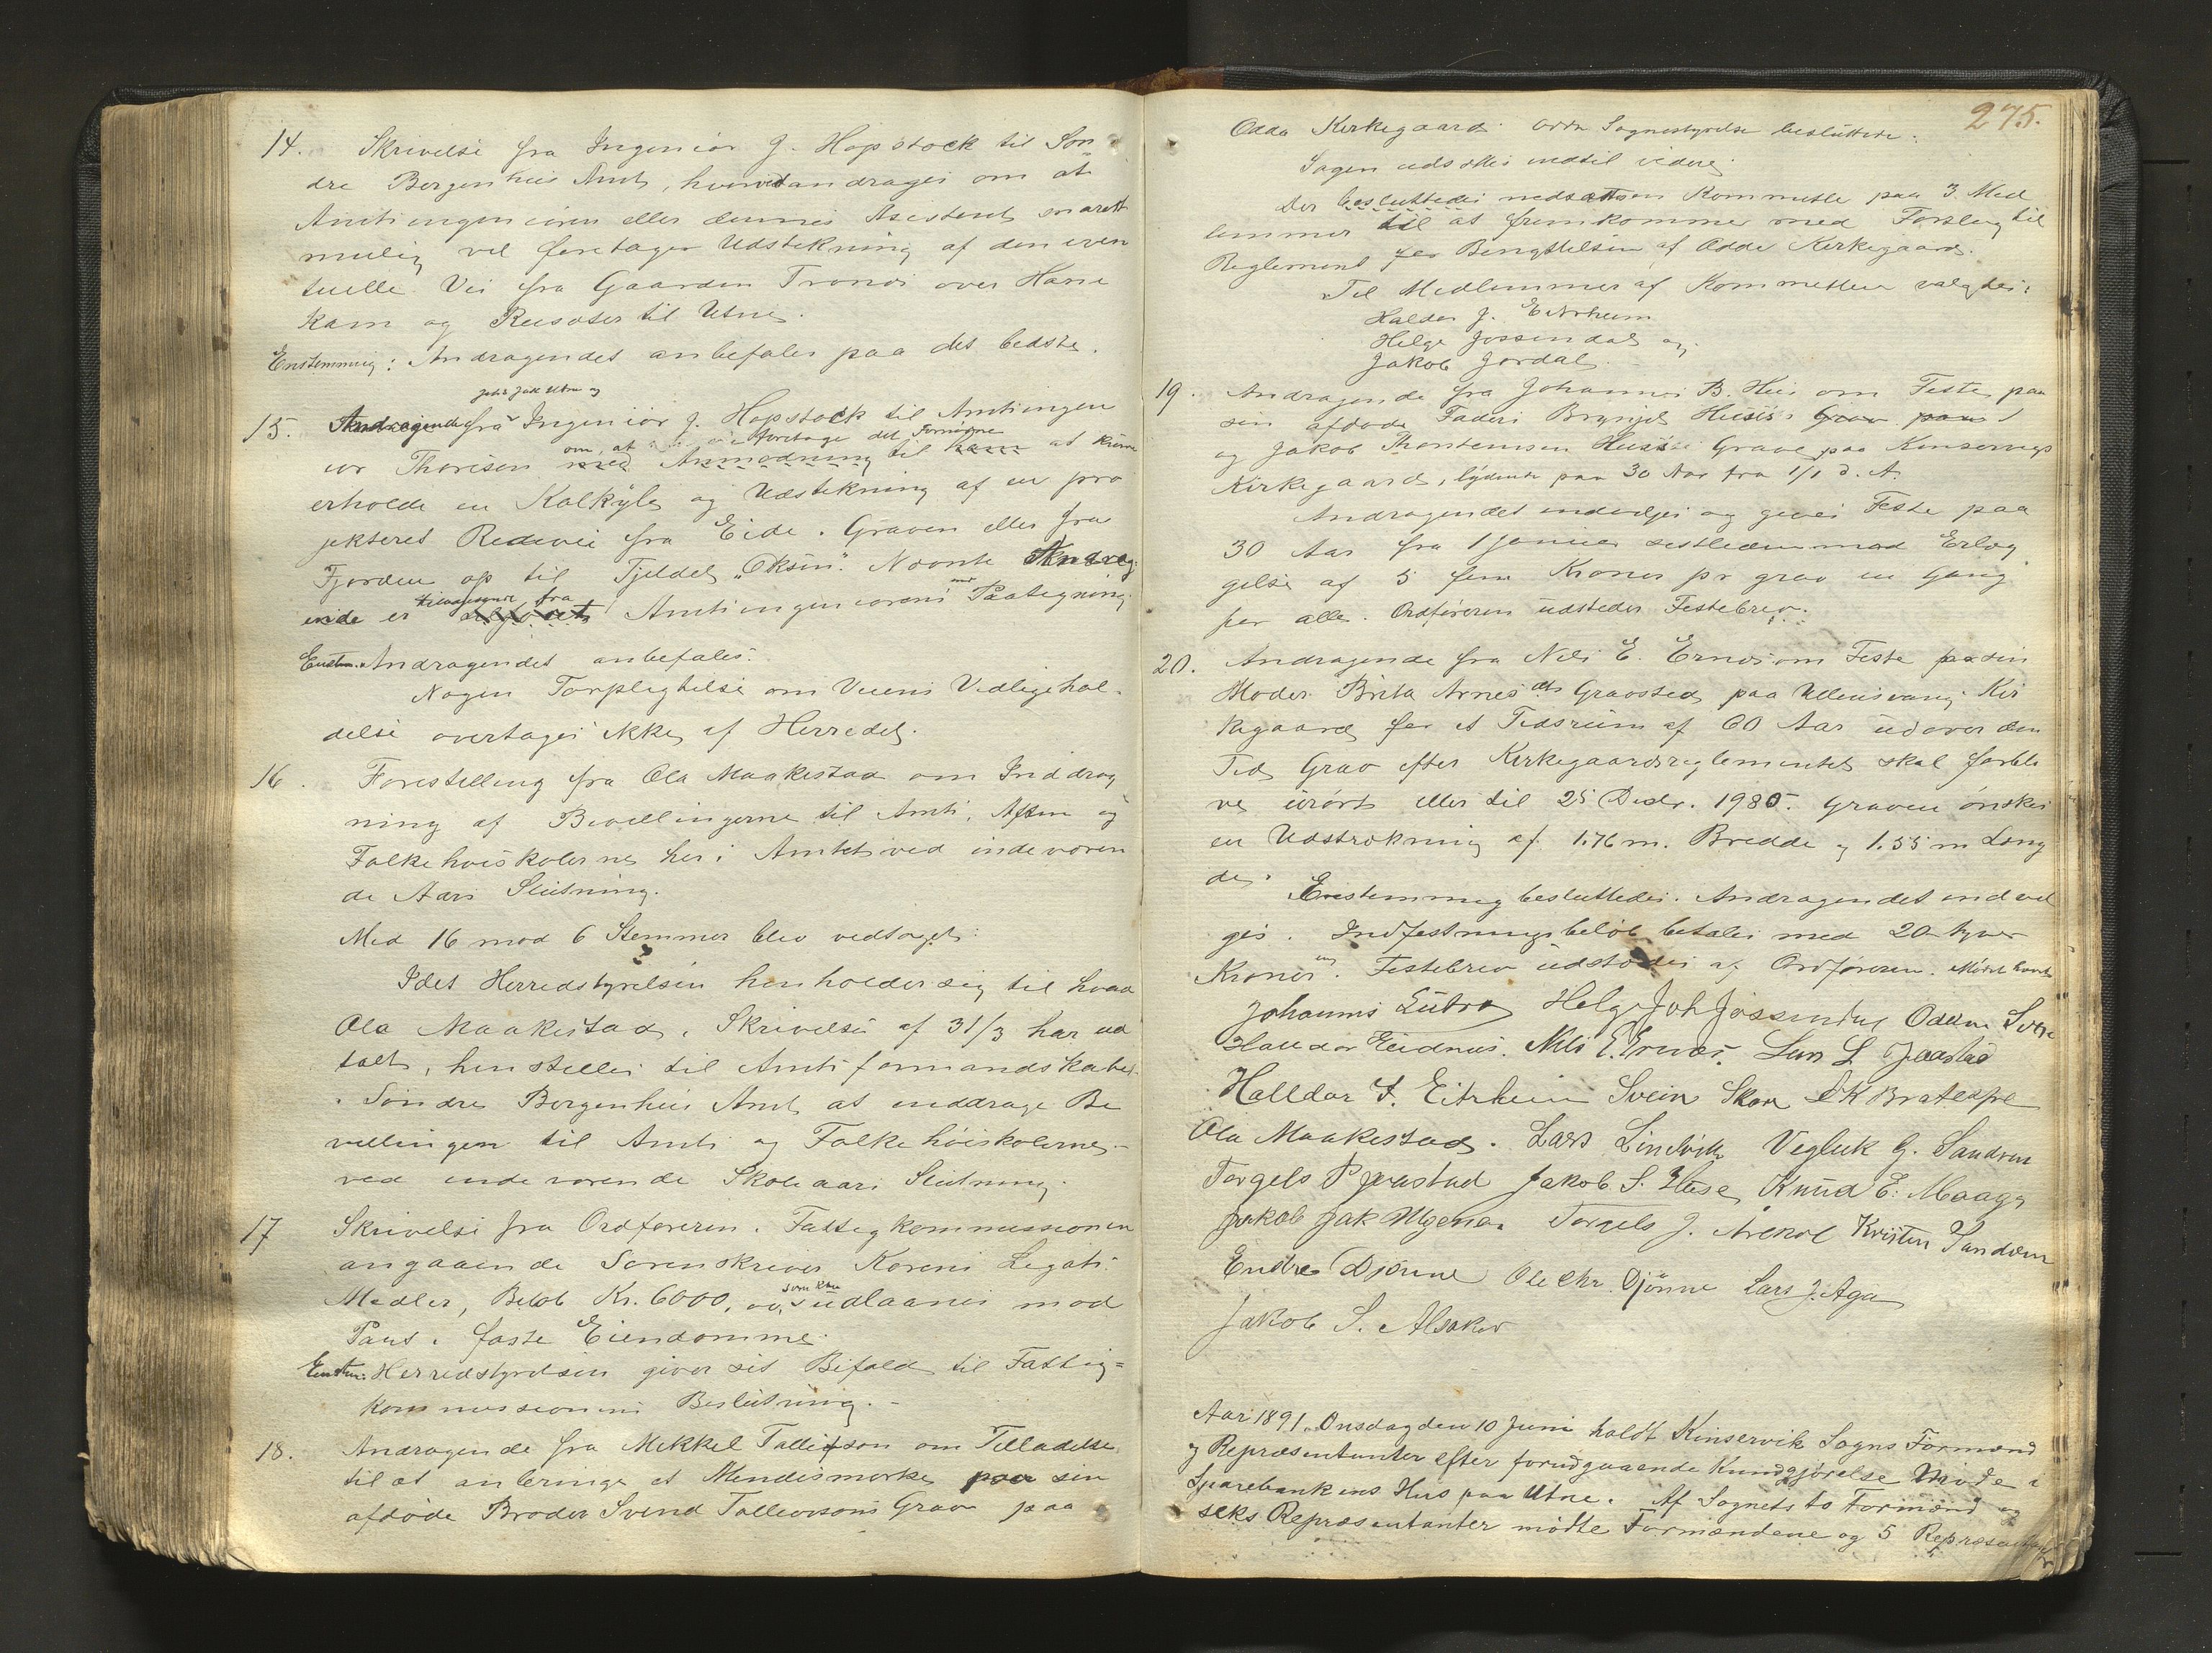 14. Skrivelse fra Ingeniør J. Hopstock til Søn
dre Bergenhus Amt, hvorved andrages om at
Amtsingeniøren eller dennes Assistent snarest
mulig vil foretage Udstikning af den even
tuelle Vei fra Gaarden Tronæs over Hane
kam og Reisæter til Utne.
Enstemmig: Andragendet anbefales paa det bedste.
Jakob Jak Utne og
15. Andragende fra Ingeniør J. Hopstock til Amtsingeni
ør Thoresen med Anmodning til ham at kunne
om, at foretage det Fornødne
erholde en Kalkyle og Udstikning af en pro
jekteret Ridevei fra Eide i Graven eller fra
Fjorden op til Fjeldet "Oksen". Nævnte Andrag
ende er Amtsingeniørens Paategning
tilbagesendt fra med
Enstem. Andragendet anbefales.
Nogen Forpligtelse om Veiens Vedligehol-
delse overtages ikke af Herredet.
16. Forestilling fra Ola Maakestad om Inddrag
ning af Bevillingerne til Amts, Aften og
Folkehøiskolerne her i Amtet ved indeværen
de Aars Slutning.
Med 16 mod 6 Stemmer blev vedtaget:
Idet Herredstyrelsen henholder sig til hvad
Ola Maakestad i Skrivelse af 31/3 har ud
talt, henstilles til Amtsformandskabet
i Søndre Bergenhus Amt at inddrage Be
villingen til Amts og Folkehøiskolerne
ved indeværende Skoleaars Slutning.
17 Skrivelse fra Ordføreren i Fattigkommissionen
angaaende Sorenskriver Korens Legats
Midler, Beløb Kr. 6000, udlaanes mod
Pant i faste Eiendomme.
Enstem: Herredstyrelsen giver sit Bifald til Fattig=
kommissionens Beslutning. -
18. Andragende fra Mikkel Tollefson om Tilladelse
til at anbringe et Mindesmærke paa sin
afdøde Broder Svend Tollevsons Grav paa
275.
Odda Kirkegaard. Odda Sognestyrelse besluttede:
Sagen udsættes indtil videre.
Der besluttedes nedsat en Kommitte paa 3 Med
lemmer til at fremkomme med Forslag til
Reglement for Benyttelsen af Odda Kirkegaard.
Til Medlemmer af Kommitteen valgtes:
Haldor J. Eitrheim
Helge Jossendal og
Jakob Jordal.
19. Andragende fra Johannes B. Hus om Feste paa
sin afdøde Faders Brynjel Huses Grav paa
og Jakob Thorstensen Huses Grave paa Kinserviks
Kirkegaard, lydende paa 30 Aar fra 1/1 d. A.
Andragendet indvilges og gives Feste paa
30 Aar fra 1 Januar sidstleden mod Erlæg
gelse af 5 fem Kroner pr grav en Gang
for alle. Ordføreren udsteder Festebrev.
20. Andragende fra Nils E. Ernæs om Feste paa sin
Moder Brita Arnesdtr Gravsted paa Ullensvang Kir
kegaard for et Tidsrum af 60 Aar udover den
Tid Grav efter Kirkegaardsreglementet skal forbli
ve urørt eller til 25 Decbr. 1985. Graven ønskes i
en Udstrækning af 1.76 m. Bredde og 1.55 m Læng
de.
Enstemmig besluttedes: Andragendet indvil
ges. Indfestningsbeløb betales med 20 tyve
Kroner. Festebrev udstædes af Ordføreren. Mødet hævet
Johannes Lutro Helge Joh Jossendal
Nils E. Ernæs. Lars L Jaastad
Halldor J. Eitrheim Svein Skare
Ola Maakestad. Lars Lindvik Vegleik G. Sandven
Torgels P Jaastad Jakob S. Huse, Knud E. Maage
Torgels J. Kristen Sandven
Endre Djønne Ole Chr. Djønne Lars J. Aga
Jakob S. Alsaker
Aar 1891, Onsdag den 10 Juni holdt Kinservik Sogns Formænd
og Repræsentanter efter forudgaaende Kundgjørelse Møde i
Sparebankens Hus paa Utne. Af Sognets to Formænd og
seks Repræsentanter mødte Formændene og 5 Repræsentanter